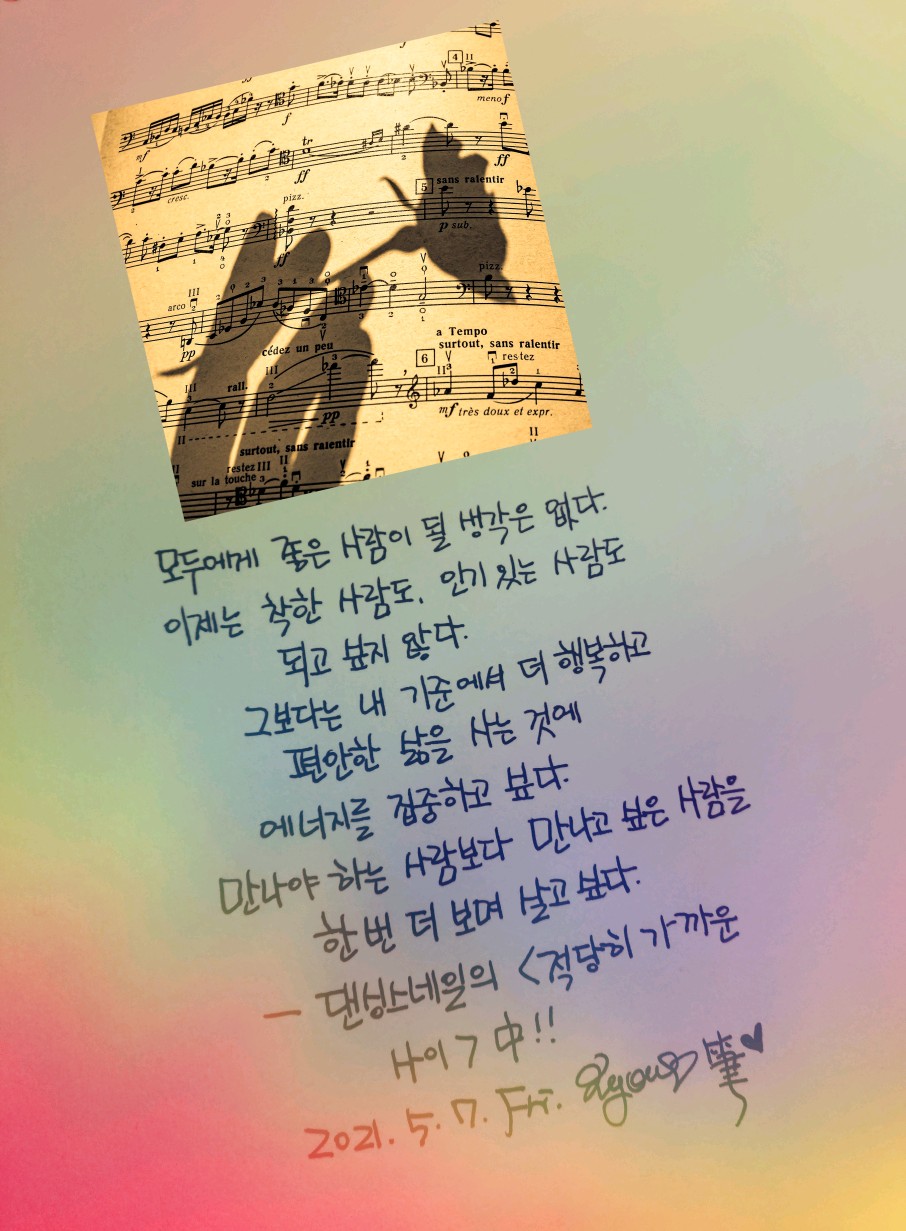 4 II
meno f
mf
f
tr
cresc.
ff
ff
5 sans ralentir
pizz.
p sub.
ff
pizz.
arco III
a Tempo
surtout, sans ralentir
pp
cédez un peu
6
restez
III
rall.
III
II
pp
mf très doux et expr.
II
surtout, sans ralentir
II
restez III II
sur la touche
모두에게 좋은 사람이 될 생각은 없다.
이제는 착한 사람도, 인기 있는 사람도
되고 싶지 않다.
그보다는 내 기준에서 더 행복하고
편안한 삶을 사는 것에
에너지를 집중하고 싶다.
만나야 하는 사람보다 만나고 싶은 사람을
한번 더 보며 살고 싶다.
- 댄싱스네일의 <적당히 가까운
사이> 中!!
2021. 5. 7. Fri. 筆